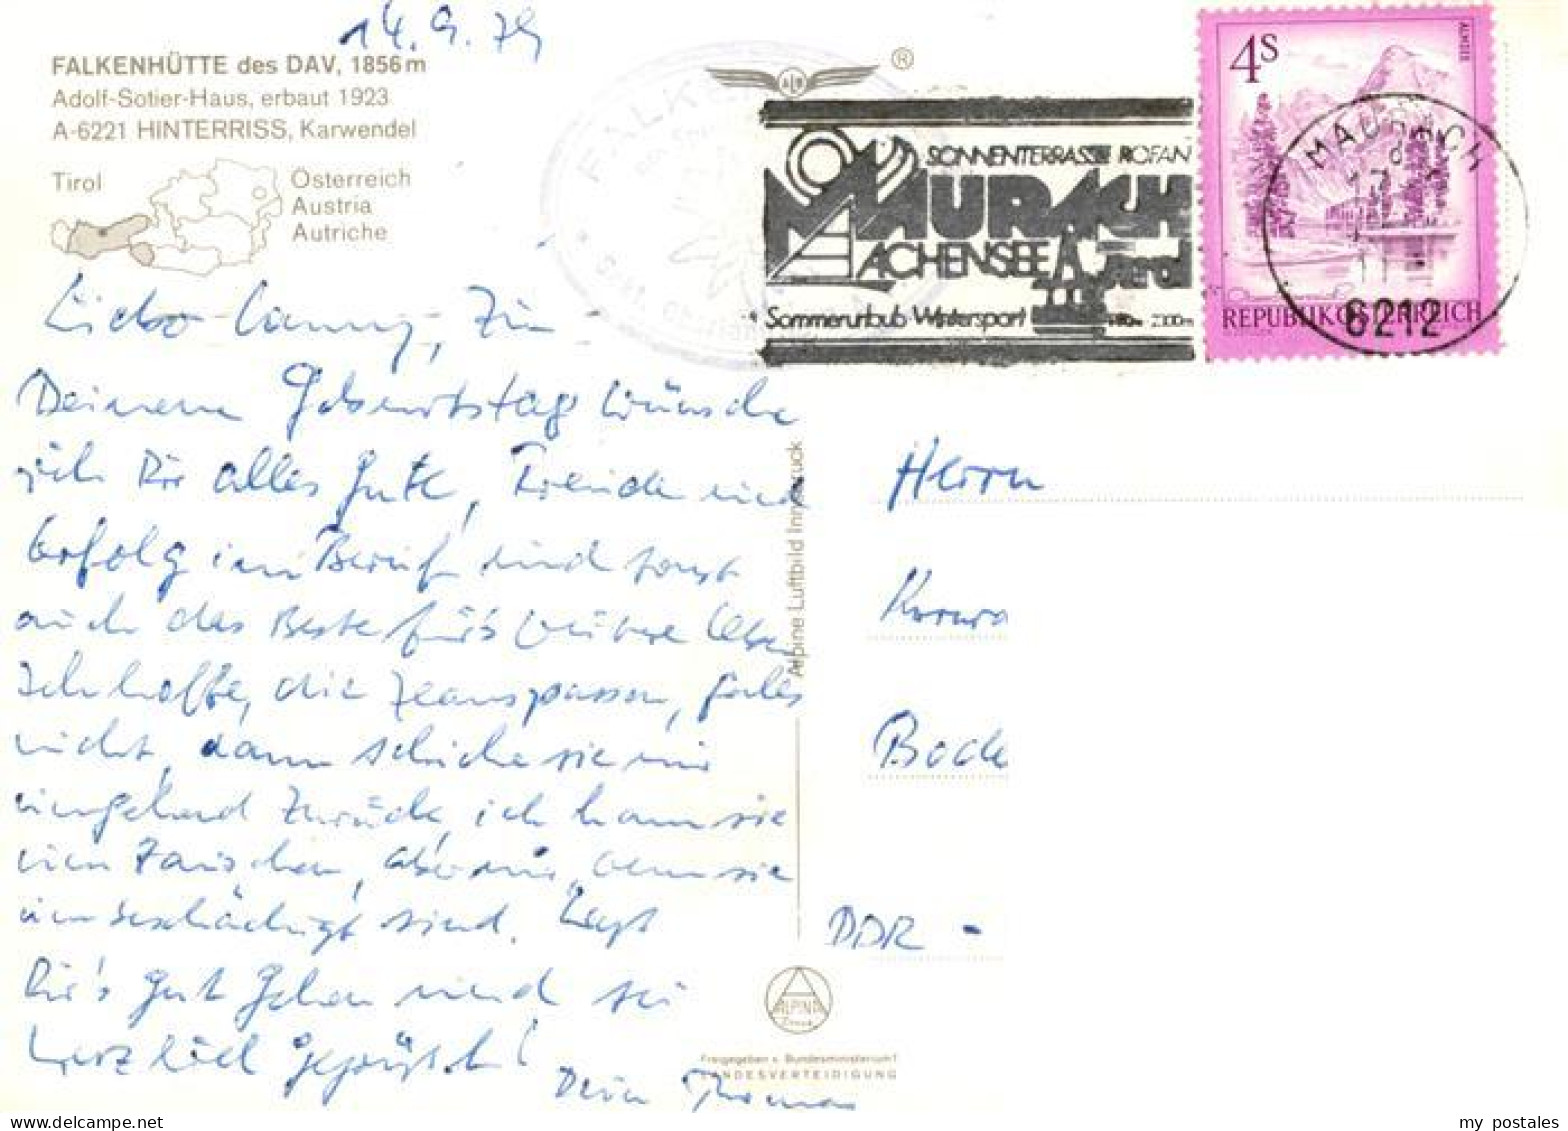 14.9.79
FALKENHÜTTE des DAV, 1856 m
Adolf-Sotier-Haus, erbaut 1923
A-6221 HINTERRISS, Karwendel
Tirol
Österreich
Austria
Autriche
ALM
®
FALKEN
SONNENTERRASSE ROFAN
MAURACH
ACHENSEE
Tirol
Sommerurlaub-Wintersport
4S
ALMSEE
REPUBLIK ÖSTERREICH
MAURACH
6212
Zu
Deinem Geburtstage wünsche
ich Dir alles Gute, Freude und
Erfolg im Beruf und sonst
auch das Beste für's weitere Leben
Ich hoffe, die Jeans passen, falls
nicht, dann schicke sie mir
umgehend zurück, ich kann sie
umtauschen, aber nur, wenn sie
unbeschädigt sind. Lass
Dir's gut gehen und sei
herzlich gegrüßt!
Dein Thomas
Alpine Luftbild Innsbruck
Herrn
Bock
DDR -
ALPINA
Druck
Freigegeben v. Bundesministerium f.
LANDESVERTEIDIGUNG
my postales